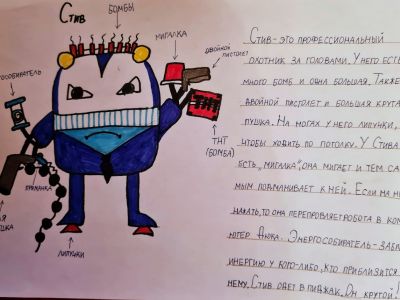 Стив
БОМБЫ
МИГАЛКА
ДВОЙНОЙ
ПИСТОЛЕТ
ОСОБИРАТЕЛЬ
ТНТ
(БОМБА)
ПРИМАНКА
АЯ
УШКА
ЛИПУЧКИ
СТИВ-ЭТО ПРОФЕССИОНАЛЬНЫЙ
ОХОТНИК ЗА ГОЛОВАМИ. У НЕГО ЕСТЬ
МНОГО БОМБ И ОДНА БОЛЬШАЯ. ТАКЖЕ
ДВОЙНОЙ ПИСТОЛЕТ И БОЛЬШАЯ КРУТА
ПУШКА. НА НОГАХ У НЕГО ЛИПУЧКИ,
ЧТОБЫ ХОДИТЬ ПО ПОТОЛКУ. У СТИВА
ЕСТЬ „МИГАЛКА", ОНА МИГАЕТ И ТЕМ СА
МЫМ ПОДМАНИВАЕТ К НЕЙ. ЕСЛИ НА НЕ
НАЖАТЬ, ТО ОНА ПЕРЕПРОВЛЯЕТ РОБОТА В КОМ
ЮТЕР ДЮКА. ЭНЕРГОСОБИРАТЕЛЬ-ЗАБИ
ИНЕРГИЮ У КОГО-ЛИБО, КТО ПРИБЛИЗИТСЯ
НЕМУ. СТИВ ОДЕТ В ПИДЖАК. ОН КРУТОЙ!